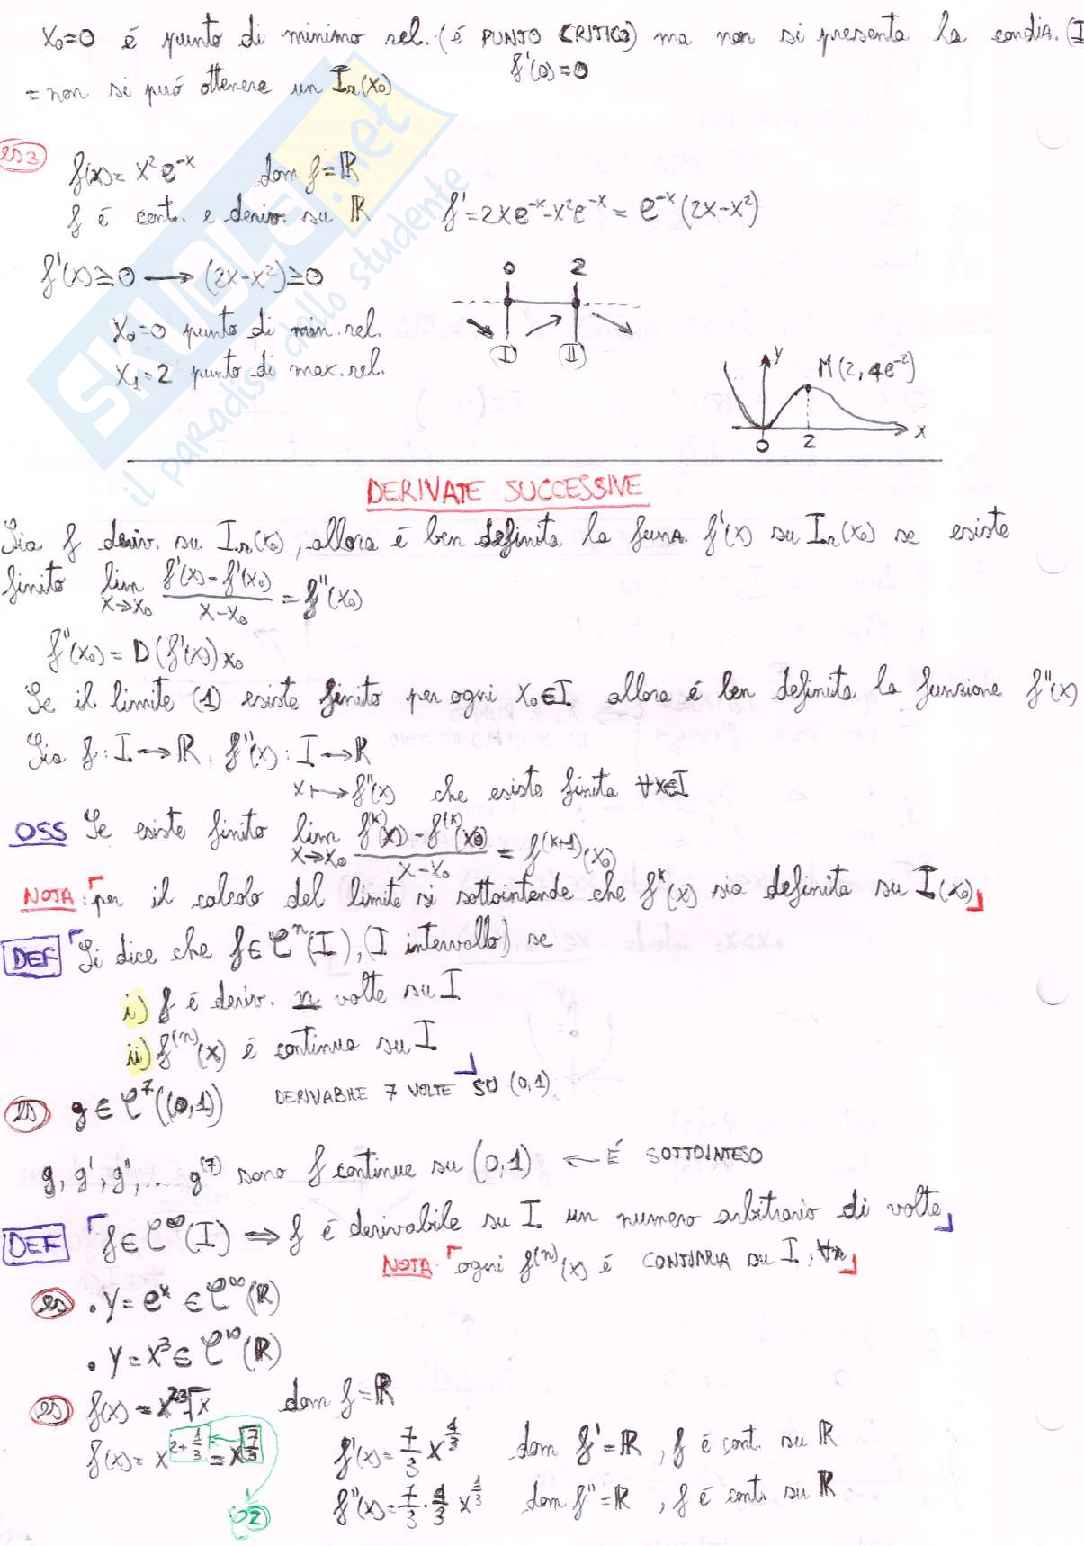 x₀=0 é punto di minimo rel. (é PUNTO CRITICO) ma non si presenta la condiz. (I
f'(0)=0
=non si può ottenere un Iₙ(x₀)
es 3
f(x)= x²e⁻ˣ dom f=ℝ
f é cont. e deriv. su ℝ f'=2xe⁻ˣ-x²e⁻ˣ= e⁻ˣ(2x-x²)
f'(x)≥0 → (2x-x²)≥0
0 2
x₀=0 punto di min.rel.
I II
x₁=2 punto di max.rel.
y M(2,4e⁻²)
0 2 x
SKUOLA.net
il paradiso dello studente
DERIVATE SUCCESSIVE
Sia f deriv. su Iₙ(x₀), allora é ben definita la funz. f'(x) su Iₙ(x₀) se esiste
finito lim x→x₀ (f'(x)-f'(x₀))/(x-x₀) = f''(x₀)
f''(x₀)= D(f'(x))x₀
Se il limite (1) esiste finito per ogni x₀∈I allora é ben definita la funzione f''(x)
Sia f: I→ℝ, f''(x): I→ℝ
x↦f''(x) che esiste finita ∀x∈I
OSS Se esiste finito lim x→x₀ (f⁽ᵏ⁾(x)-f⁽ᵏ⁾(x₀))/(x-x₀) = f⁽ᵏ⁺¹⁾(x₀)
NOTA: per il calcolo del limite si sottointende che fᵏ(x) sia definita su I(x₀)
DEF Si dice che f∈Cⁿ(I), (I intervallo) se
i) f é deriv. n volte su I
ii) f⁽ⁿ⁾(x) é continua su I
es g∈C⁷((0,1)) DERIVABILE 7 VOLTE SU (0,1)
g, g', g'', ... g⁽⁷⁾ sono f continue su (0,1) ← É SOTTOINTESO
DEF f∈C^∞(I) ⇒ f é derivabile su I un numero arbitrario di volte
NOTA: ogni f⁽ⁿ⁾(x) é CONTINUA su I, ∀n
es • y=eˣ ∈ C^∞(ℝ)
• y=x³∈ C¹⁰(ℝ)
es f(x)= x²∛x dom f=ℝ
f(x)= x^(2+1/3) = x^(7/3) f'(x)= 7/3 x^(4/3) dom f'=ℝ, f é cont. su ℝ
f''(x)= 7/3 · 4/3 x^(1/3) dom f''=ℝ, f é cont. su ℝ